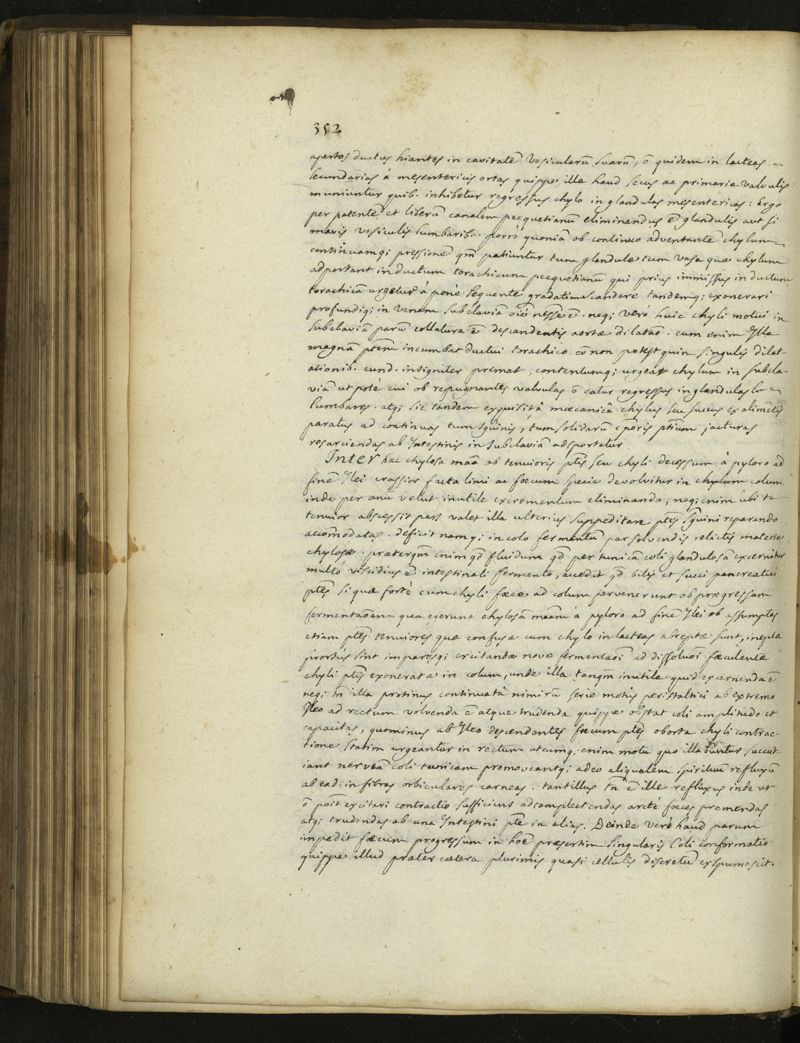 352
apertos ductus hiantes in cavitatē vesicularū suarū, ō quidem in lacteas
secundarias á mesenterius ortas quippe illa haud secus ac primaria valvulis
muniuntur quib. inhibetur regressus chylo in glandulas mesentericas: Ergo
per patentē et liberū canalem pecquetianū eliminandus ē glandulis aut si
mavis vesiculis lumbaribs. porró quoniā ob continuo adventante chylum
continuamq; pressionē qm̄ patiuntur tum glandulæ tum vasa quæ chylum
adportant in ductum toracicum pecquetianū qui prius immissus in ductum
toracicū urgetur á poné sequente gradatim scandere tandemq; exonerari
profundiq; in venam subclaviā oīo nesse ē. neq; veró huic chyli motui in
subclaviā parum collatura ē descendentis aortæ dilataō. cum enim illa
magnā ptem incumbat ductui toracico nōn potest quin singulis dilat-
ationib. eund. insigniter premat, contentumq; urgeat chylum in subcla-
viā ut poté cui ob repugnantes valvulas ō datur regressus in glandulas lu-
lumbares. atq; sic tandem expuisitâ mæcanicâ chylus seu succus ex alimētis
paratus ad continuas tum sguinis, tum solidarū cporis ptium jacturas
resarciendas ab Intestinis in subclaviā adsportatur
Inter hæc chylosa maā ob tenuioris ptis seu chyli decessum á pyloro ad
finē Ilei crassior facta limi ac fæcum specie devolvitur in chylum colum
inde per anū velut inutile excrementum eliminanda, neq; enim ubi te-
tenuior abscessit pars valet illa ulterius suppeditare ptes sguini reparando
acōmodatas. deficit namq; in colo fermentum par solvendis relictis materiæ
chylosæ. præterqm̄ enim qd fluidum qd per tunicā coli glandulosā excernitur
multó viscidius ē intestinali fermento, accedit qd bilis et succi pancreatici
ptes si quæ forté cum chyli fæce ad colum pervenerunt ob prægressam
fermentaōem qua egerunt chylosām maām á pyloro ad finē Ilei ob assumptas
etiam ptes tenuiores quæ confusæ cum chylo in lacteas abreptæ sunt, ineptæ
prorsus sint imparesq; excitandæ novæ fermentaōi ad dissoluōi fæculentæ
chyli ptes exoneratæ in colum, unde illa tanqm̄ inutile quid excernenda ē
neq; tn̄ illa protinus continuatâ nimirū serie motûs peristaltici ab extremo
Ileo ad rectum volvenda ē atque trudenda quippe obstat coli amplitudo et
capacitas, quominus ab Ileo descendentes fæcum ptes oborta chyli contrac-
tione statim urgeantur in rectum utcumq. enim motu quo illa duntur succut
iant nerveā coli tunicam promoveantq; adeo aliqualem spirituum refluxū
ab ead. in fibras orbiculares carneas. tantillus tn̄ ē ille refluxus inde ut
ō possit excitari contractio sufficiens ad complectendas arcté fæces premendas
atq; trudendas ab una Intestini pte in alias. Deinde veró haud parum
impedit fæcum progressum in hoc præsertim singularis Coli conformatio
quippe illud præter cætera plurimis quasi cellulis discretū expumescit.